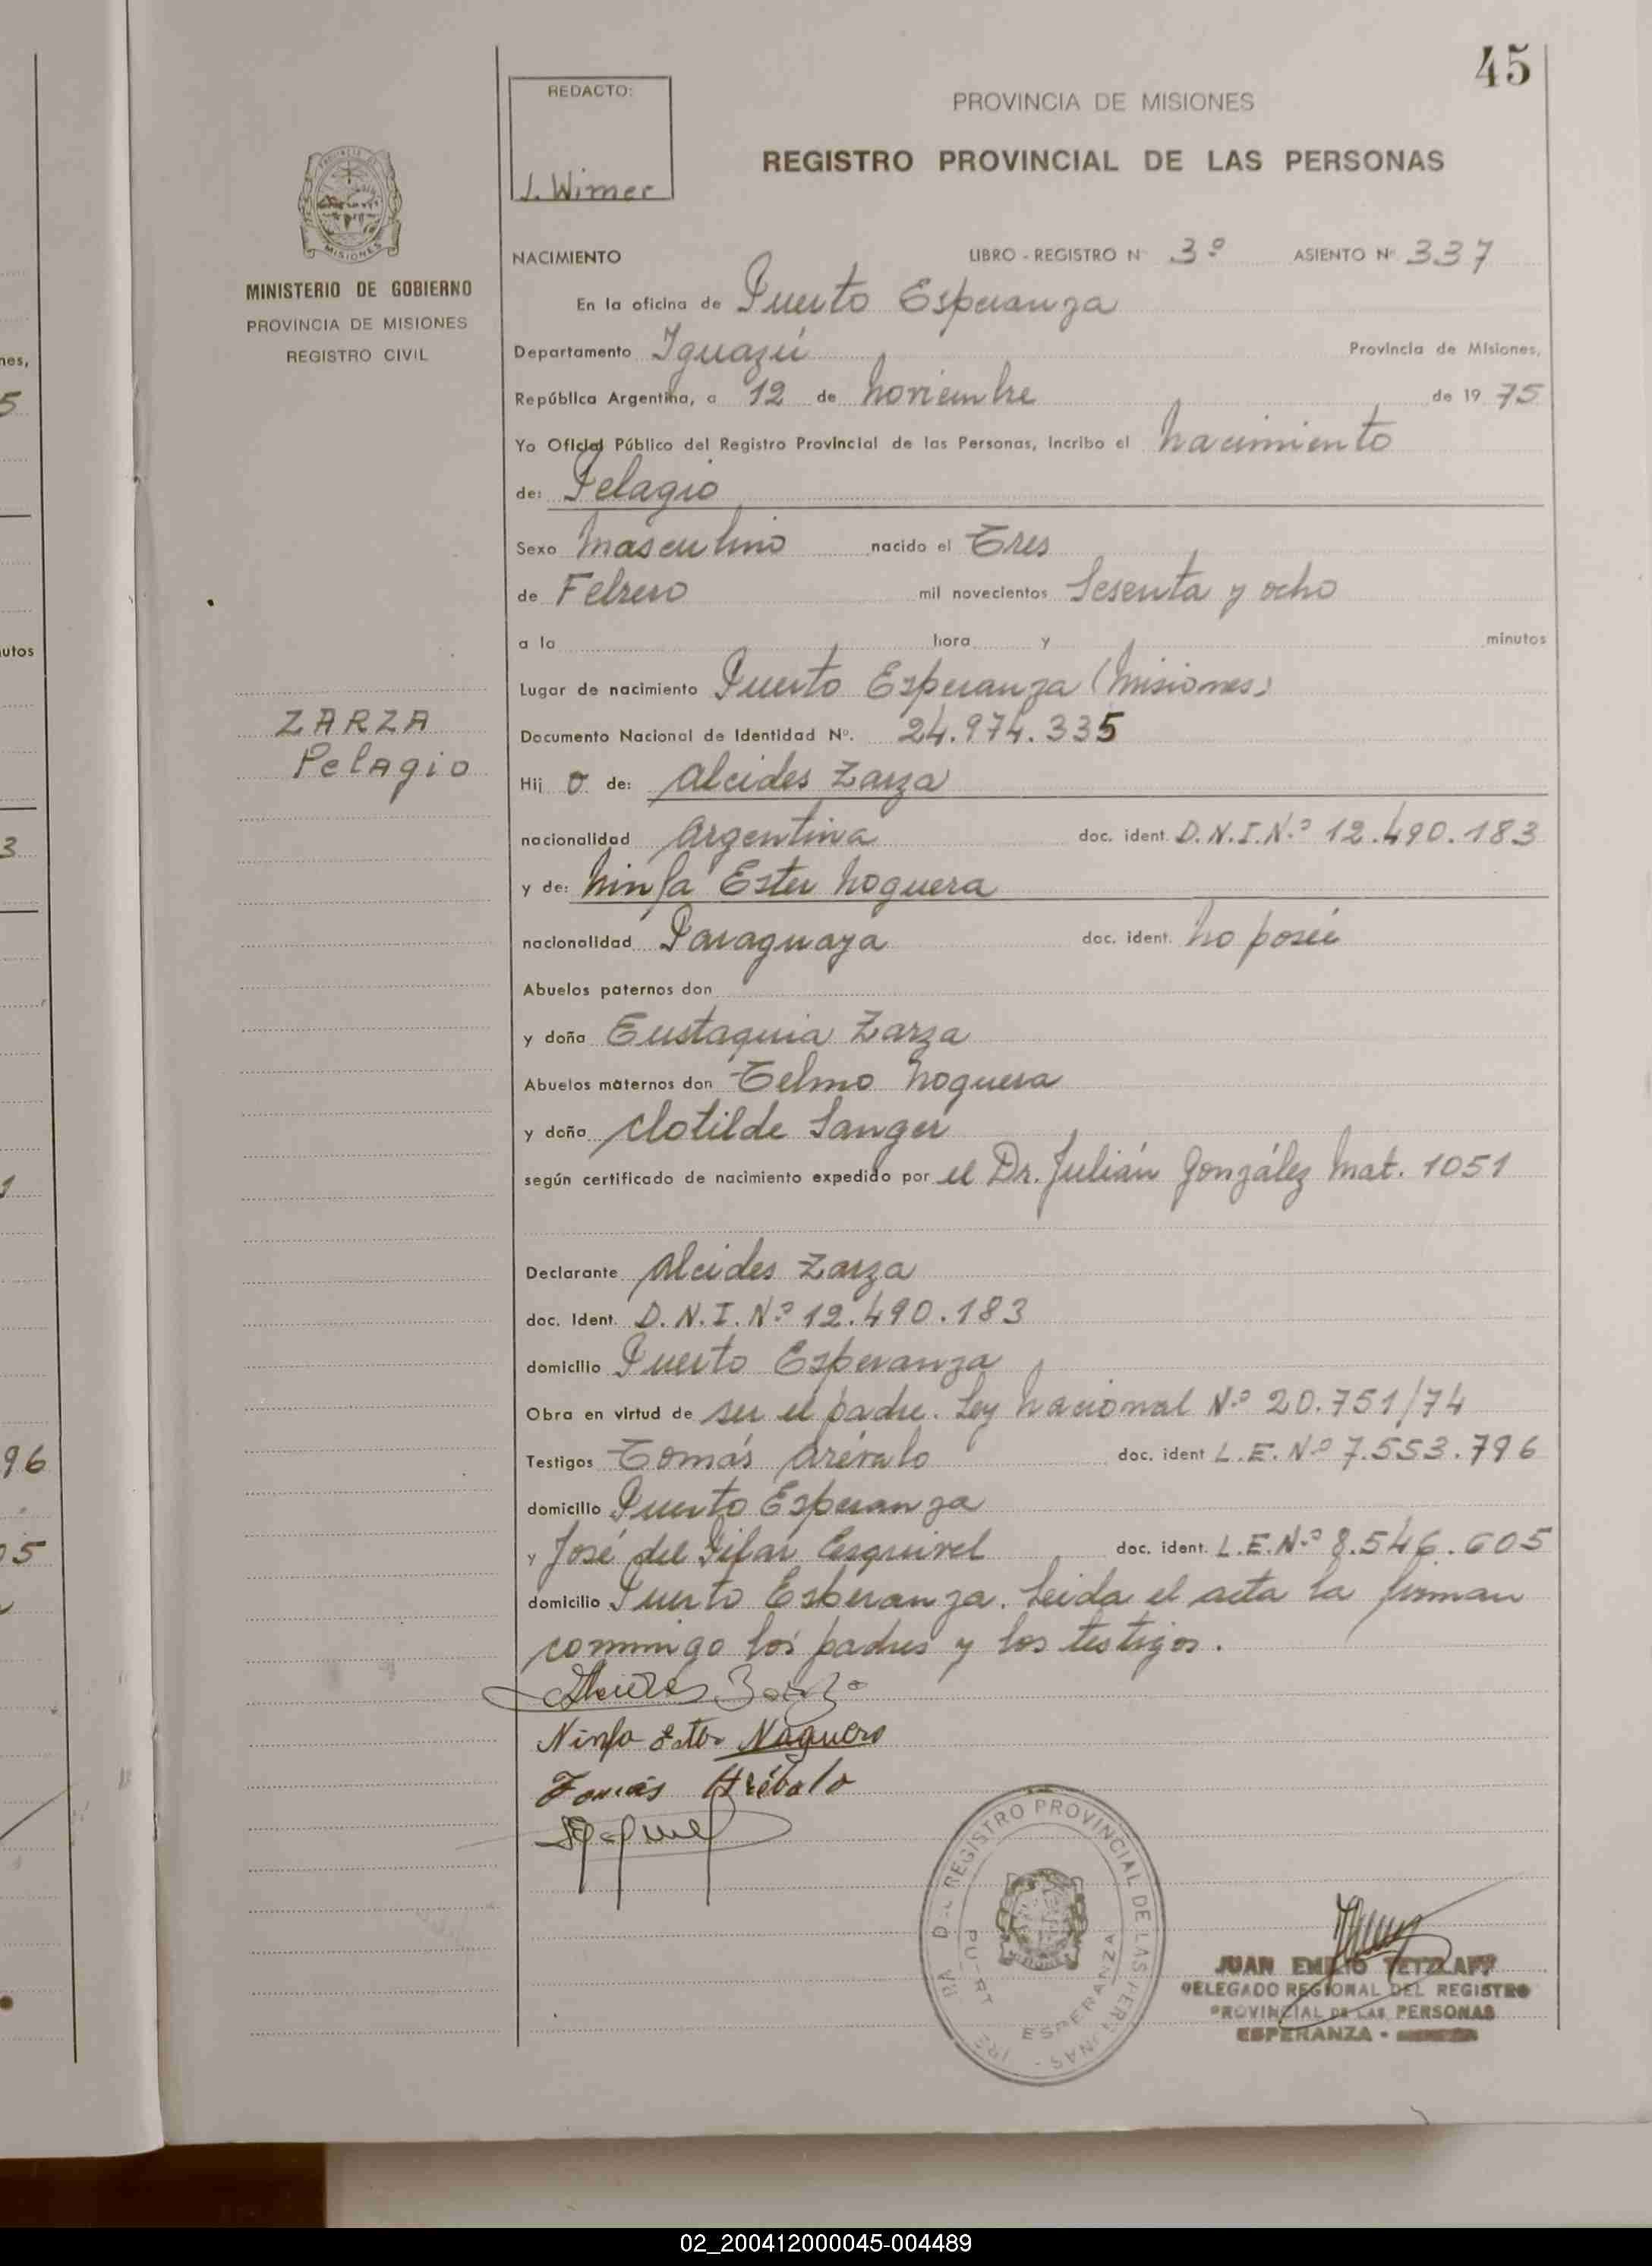 45
REDACTO:
J. Wimer
PROVINCIA DE MISIONES
REGISTRO PROVINCIAL DE LAS PERSONAS
MISIONES
MINISTERIO DE GOBIERNO
PROVINCIA DE MISIONES
REGISTRO CIVIL
NACIMIENTO LIBRO - REGISTRO Nº 3º ASIENTO Nº 337
En la oficina de Puerto Esperanza
Departamento Iguazú Provincia de Misiones,
República Argentina, a 12 de Noviembre de 19 75
Yo Oficial Público del Registro Provincial de las Personas, Incribo el Nacimiento
de: Pelagio
Sexo Masculino nacido el Tres
de Febrero mil novecientos Sesenta y ocho
a la hora y minutos
Lugar de nacimiento Puerto Esperanza (Misiones)
ZARZA
Pelagio
Documento Nacional de Identidad Nº. 24.974.335
Hij o de: Alcides Zarza
nacionalidad Argentina doc. ident. D.N.I.N.º 12.490.183
y de: Ninfa Ester Noguera
nacionalidad Paraguaya doc. ident. No posée
Abuelos paternos don
y doña Eustaquia Zarza
Abuelos maternos don Telmo Noguera
y doña Clotilde Sanger
según certificado de nacimiento expedido por el Dr. Julián González Mat. 1051
Declarante Alcides Zarza
doc. Ident. D.N.I.Nº 12.490.183
domicilio Puerto Esperanza
Obra en virtud de ser el padre. Ley Nacional N.º 20.751/74
Testigos Tomás Arévalo doc. ident L.E.Nº 7.553.796
domicilio Puerto Esperanza
y José del Pilar Esquivel doc. ident. L.E.N.º 8.546.605
domicilio Puerto Esperanza. Leida el acta la firman
conmigo los padres y los testigos.
Ninfa Ester Noguera
Tomás Arébalo
REGISTRO PROVINCIAL DE LAS PERSONAS
ESPERANZA
JUAN EMILIO TETZLAFF
DELEGADO REGIONAL DEL REGISTRO
PROVINCIAL DE LAS PERSONAS
ESPERANZA -
nes,
5
utos
3
1
96
05
02_200412000045-004489